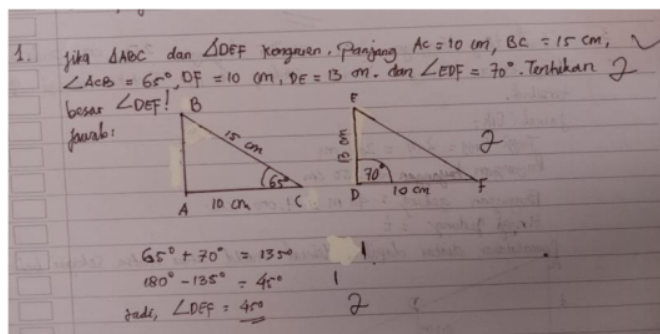 1. Jika ΔABC dan ΔDEF kongruen. Panjang AC = 10 cm, BC = 15 cm,
∠ACB = 65°, DF = 10 cm, DE = 13 m. dan ∠EDF = 70°. Tentukan 2
besar ∠DEF!
Jawab:
B
15 cm
65°
A
10 cm
C
E
13 cm
70°
D
10 cm
F
2
65° + 70° = 135° 1
180° - 135° = 45° 1
Jadi, ∠DEF = 45° 2